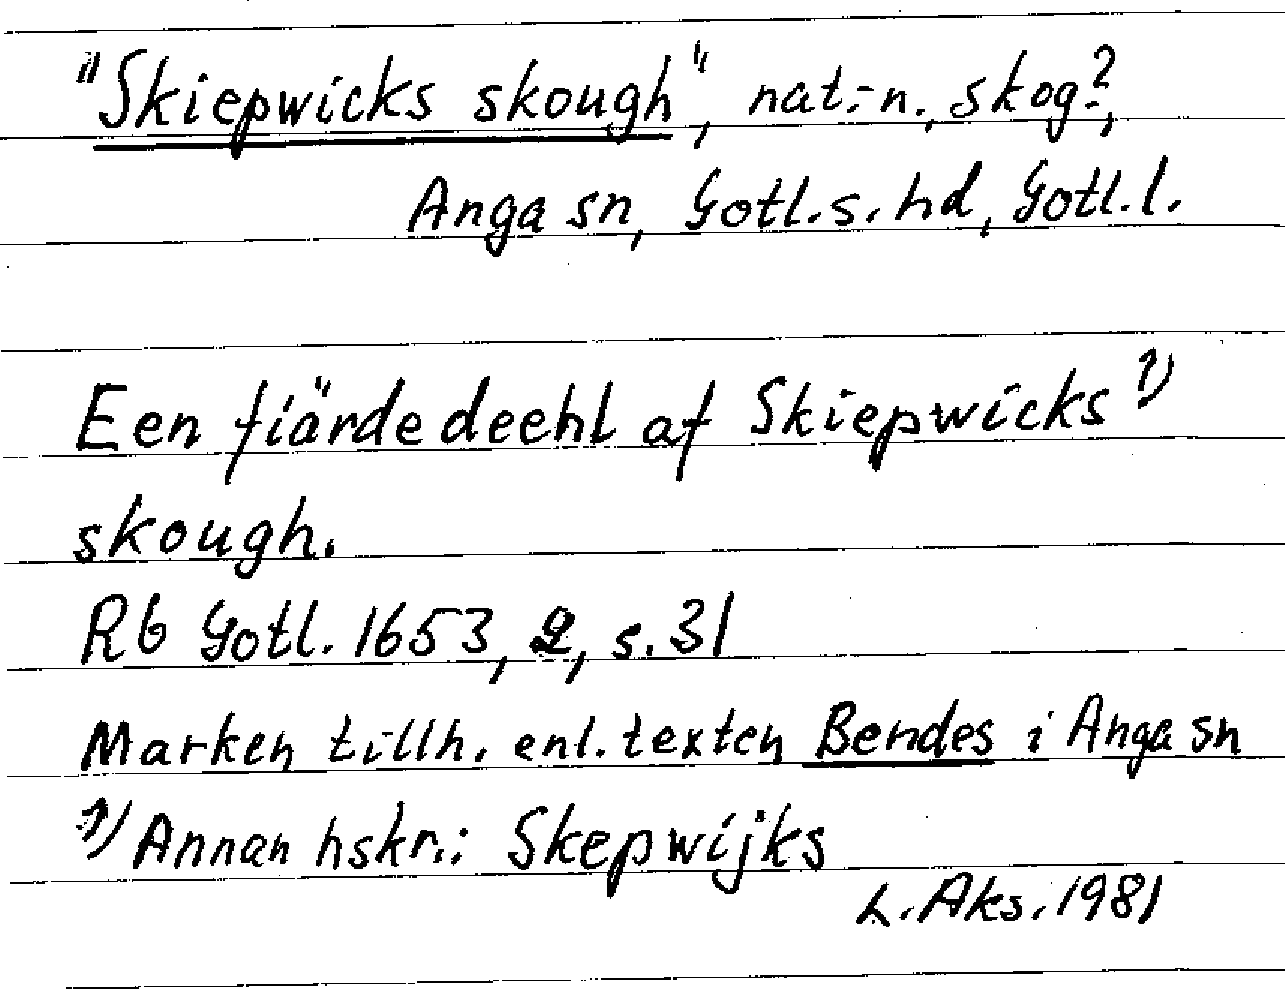 "Skiepwicks skough", nat.-n., skog?,
Anga sn, Gotl.s.hd, Gotl.l.
Een fiärdedeehl af Skiepwicks 1)
skough.
Rb Gotl. 1653, 2, s. 31
Marken tillh. enl. texten Bendes i Anga sn
1) Annan hskr.: Skepwijks
L. Aks. 1981